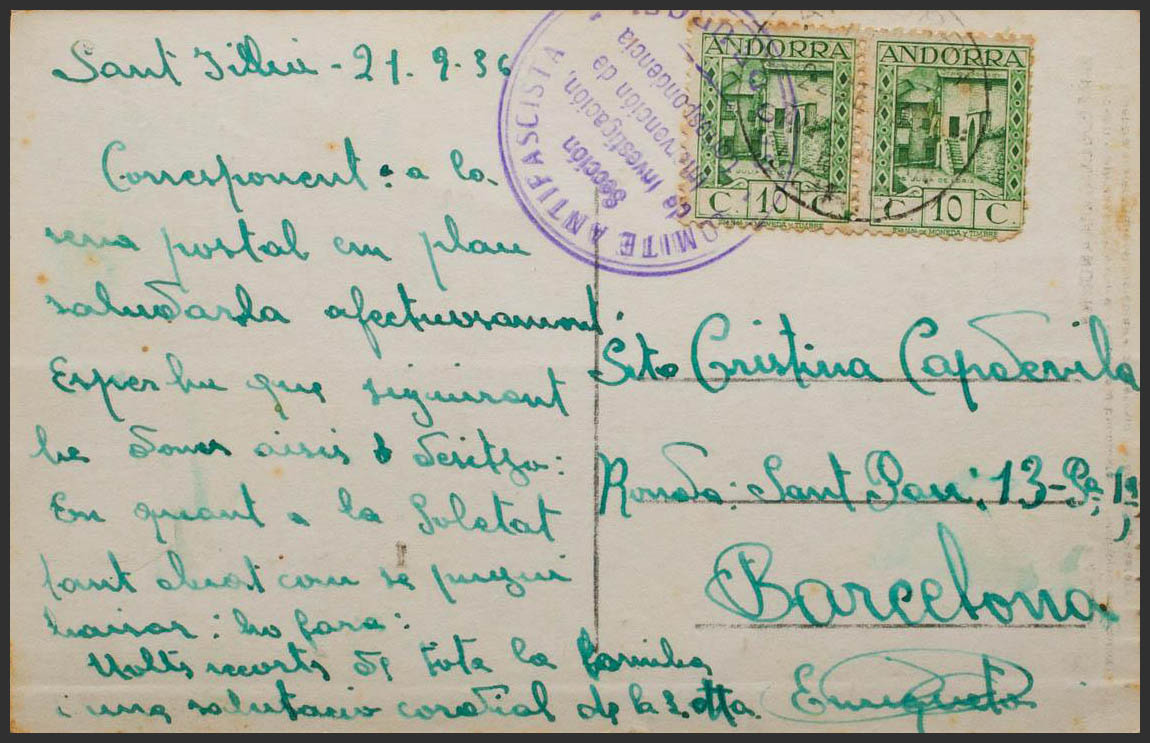 Sant Julia - 21.9.36
Corresponent: a la
seva postal em plau
saludarla afectuosament.
Espero que siguirant
be dones aixis o desitzo:
En quant a la Soletat
tant aviat com se pugui
baixar: ho fara:
Molts recorts de tota la familia
i una salutacio cordial de la S. etta.
COMITE ANTIFASCISTA
Sección
de Investigación,
Intervención de
Correspondencia
ANDORRA
JULIA DE LORIA
C. 10 C
ANDORRA
JULIA DE LORIA
C. 10 C
Sta Cristina Capdevila
Ronda: Sant Pau: 13-
Barcelona
Enriqueta